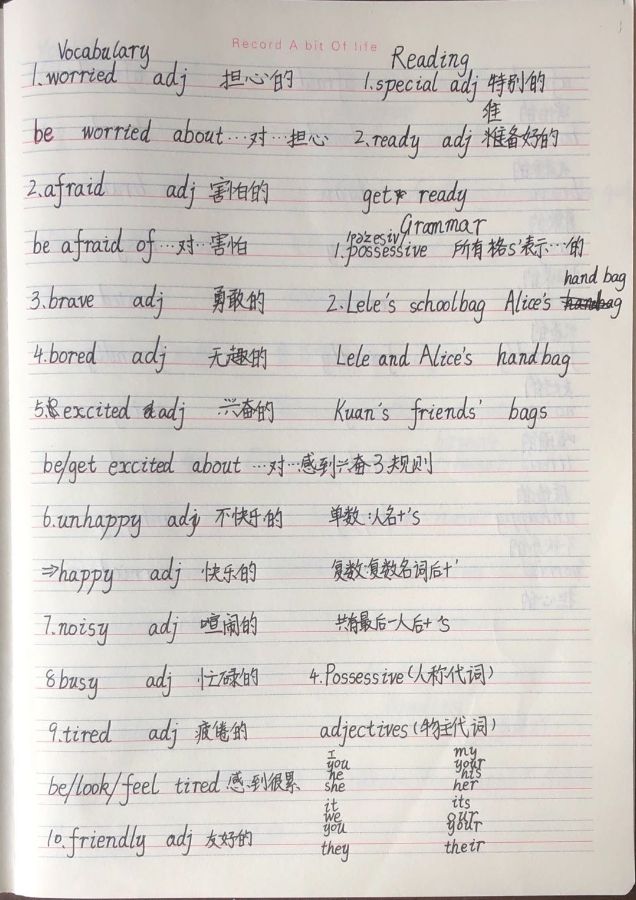 Record A bit Of life
Vocabulary
1.worried adj 担心的
be worried about…对…担心
2.afraid adj 害怕的
be afraid of…对…害怕
3.brave adj 勇敢的
4.bored adj 无趣的
5.excited adj 兴奋的
be/get excited about …对…感到兴奋
6.unhappy adj 不快乐的
⇒happy adj 快乐的
7.noisy adj 喧闹的
8busy adj 忙碌的
9.tired adj 疲倦的
be/look/feel tired 感到很累
10.friendly adj 友好的
Reading
1.special adj 特别的
准
2.ready adj 准备好的
get ready
Grammar
1.possessive 所有格s'表示…的
hand bag
2.Lele's schoolbag Alice's
Lele and Alice's handbag
Kuan's friends' bags
3规则
单数:人名+'s
复数:复数名词后+'
共有最后一人后+'s
4.Possessive(人称代词)
adjectives(物主代词)
I my
you your
he his
she her
it its
we our
you your
they their